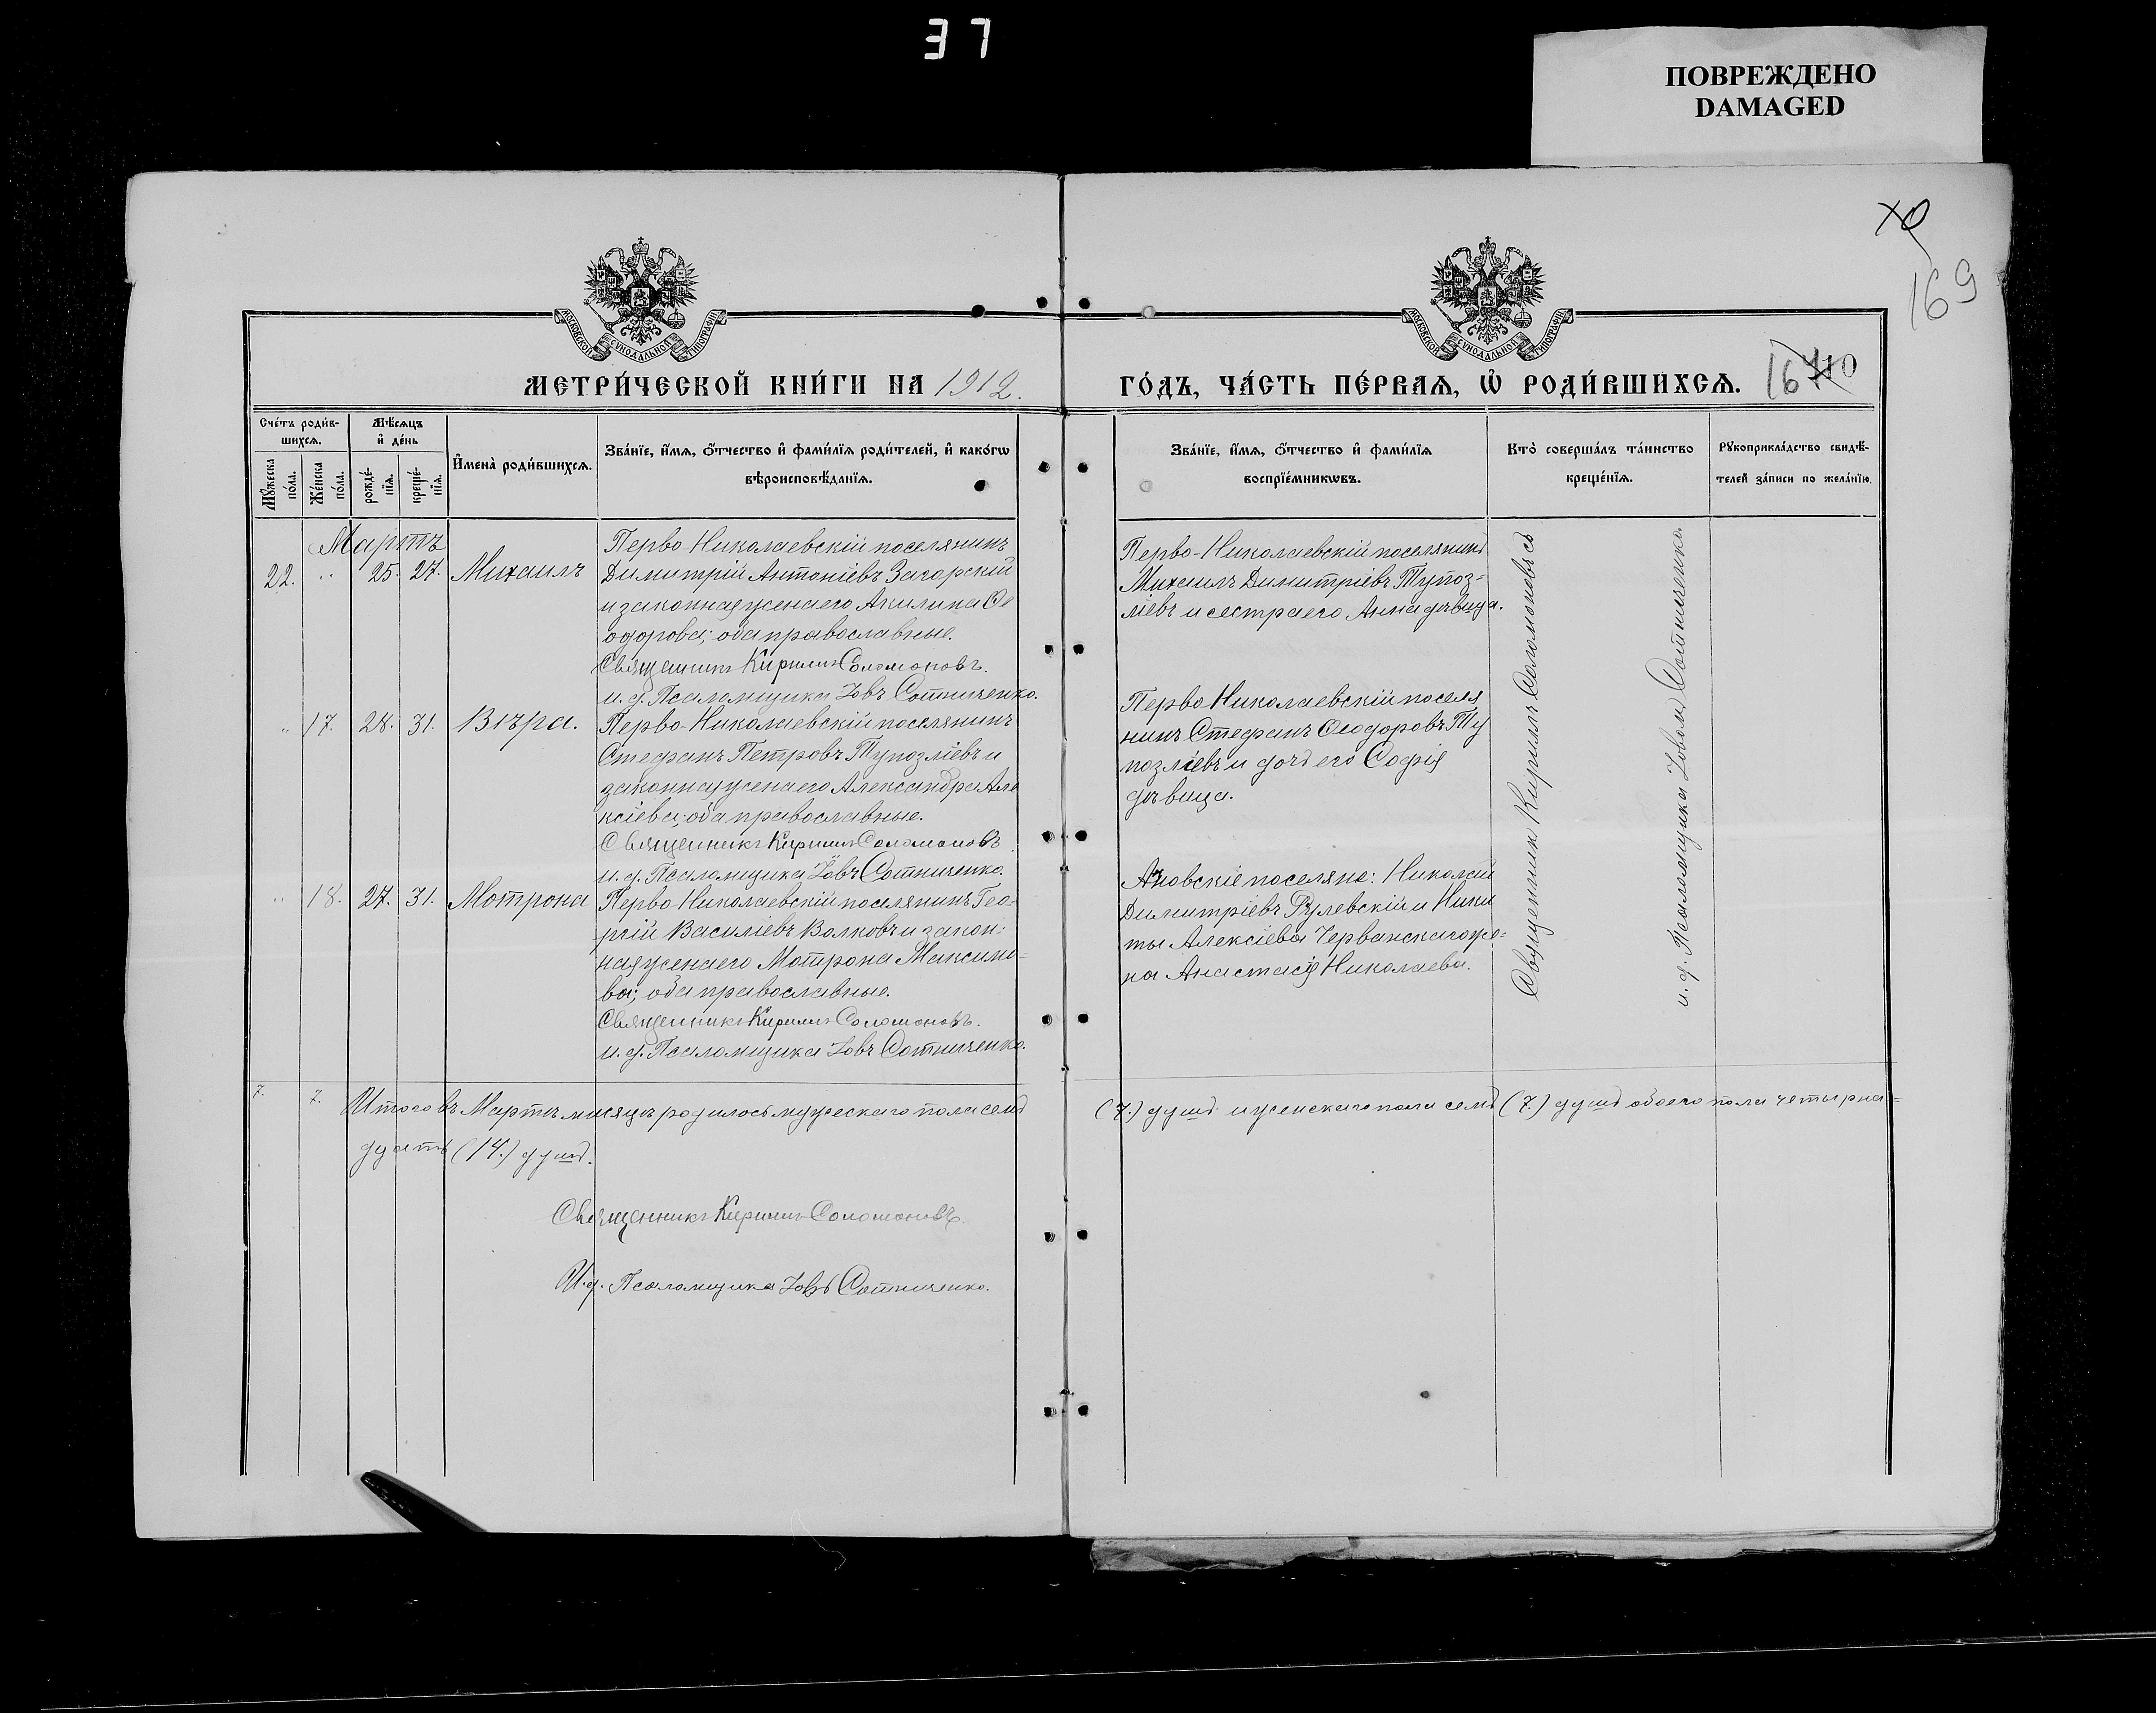 37
ПОВРЕЖДЕНО
DAMAGED
169
МОСКОВСКОЙ СѴНОДАЛЬНОЙ ТИПОГРАФІИ
МОСКОВСКОЙ СѴНОДАЛЬНОЙ ТИПОГРАФІИ
МЕТРИ́ЧЕСКОЙ КНИ́ГИ НА 1912.
ГО́ДЪ, ЧА́СТЬ ПЕ́РВАЯ, Ѡ҆ РОДИ́ВШИХСЯ.
Сче́тъ роди́в-
шихся.
Мѣ́сяцъ
и҆ де́нь
Мꙋ́жеска
по́ла.
Же́нска
по́ла.
рожде́-
нїя.
креще́-
нїя.
И҆мена̀ роди́вшихся.
Зва́нїе, и҆́мя, ѻ҆́тчество и҆ фами́лїя роди́телей, и҆ како́гѡ
вѣроисповѣ́данїя.
Зва́нїе, и҆́мя, ѻ҆́тчество и҆ фами́лїя
воспрїе́мникѡвъ.
Кто̀ соверша́лъ та́инство
креще́нїя.
Рꙋкоприкла́дство свидѣ́-
телей за́писи по жела́нїю.
Мартъ
22. " 25. 27. Михаилъ
Перво-Николаевскій поселянинъ
Димитрій Антоніевъ Загорскій
и законная жена его Акилина Ѳе
одорова; оба православные.
Священникъ Кириллъ Соломоновъ.
и. д. Псаломщика Іовъ Сотниченко.
Перво-Николаевскій поселянинъ
Михаилъ Димитріевъ Тупоз-
ліевъ и сестра его Анна дѣвица.
" 17. 28. 31. Вѣра.
Перво-Николаевскій поселянинъ
Стефанъ Петровъ Тупозліевъ и
законная жена его Александра Але
ксіева; оба православные.
Священникъ Кириллъ Соломоновъ
и. д. Псаломщика Іовъ Сотниченко.
Перво Николаевскій поселя
нинъ Стефанъ Ѳеодоровъ Ту
позліевъ и дочь его Софія
дѣвица.
" 18. 27. 31. Мотрона
Перво Николаевскій поселянинъ Гео-
ргій Василіевъ Волковъ и закон-
ная жена его Мотрона Максимо-
ва; оба православные.
Священникъ Кириллъ Соломоновъ.
и. д. Псаломщика Іовъ Сотниченко.
поселяне: Николай
Димитріевъ Рулевскій и Ники
ты Алексіева Черванскаго же-
на Анастасія Николаева.
Священник Кирилъ Соломоновъ съ
и. д. Псаломщика Іовом Сотниченко.
7. 7. Итого въ Мартѣ мѣсяцѣ родилось мужескаго пола семь
(7.) душъ и женскаго пола семь (7.) душъ обоего пола четырна-
дцать (14.) душъ.
Священникъ Кириллъ Соломоновъ.
И. д. Псаломщика Іовъ Сотниченко.